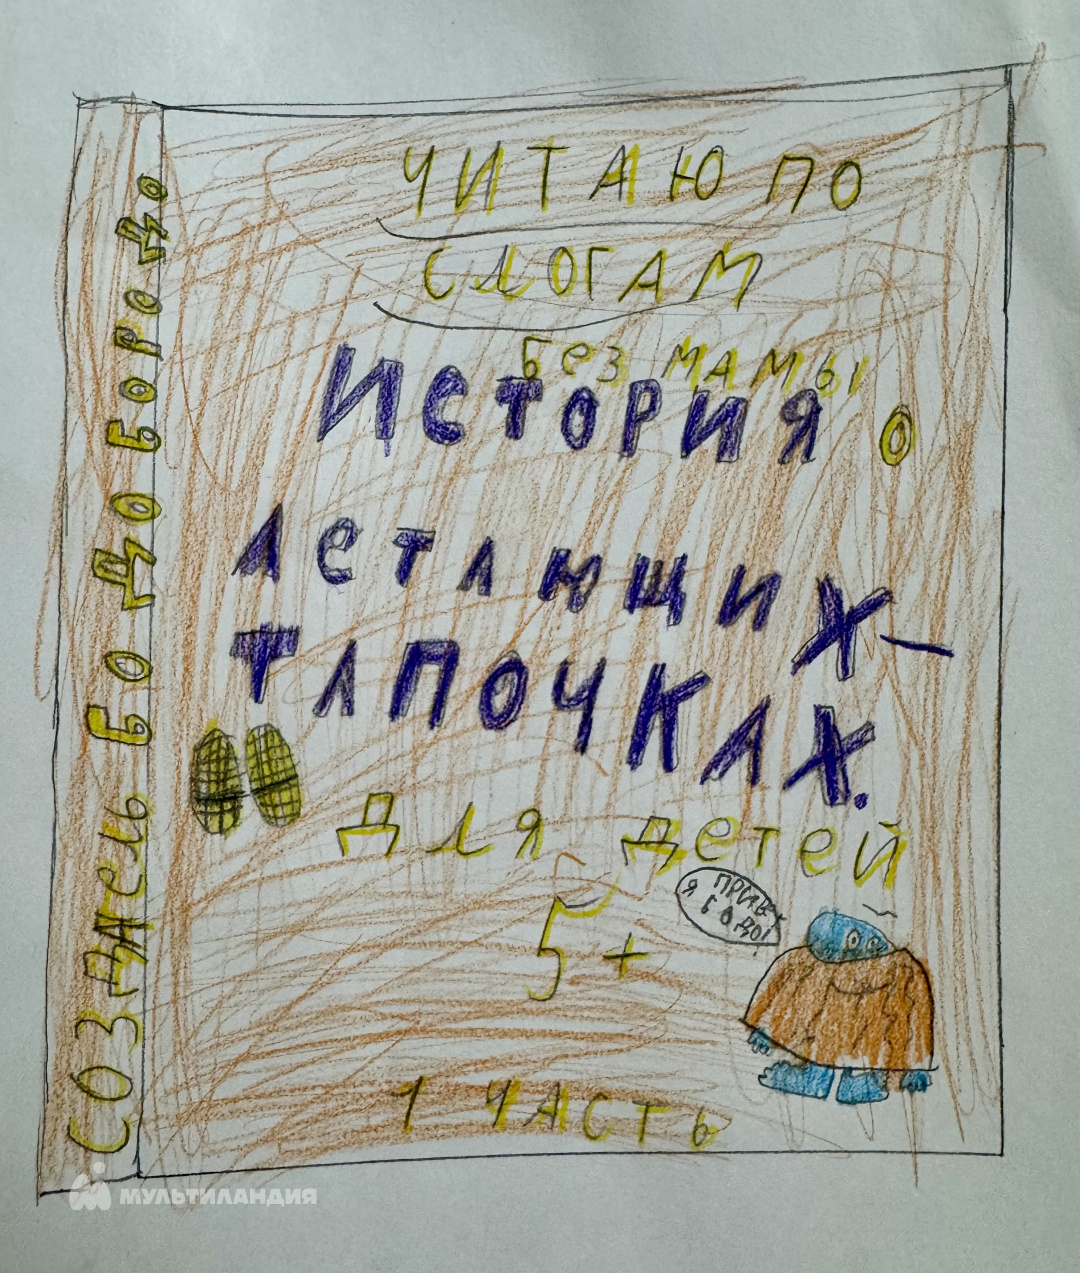 ЧИТАЮ ПО
СЛОГАМ
Без мамы
ИСТОРИЯ О
ЛЕТАЮЩИХ
ТАПОЧКАХ.
Для детей
5+
ПРИВЕТ
Я БОДО!
1 ЧАСТЬ
СОЗДАЕЛЬ БОДО БОРОДО
МУЛЬТИЛАНДИЯ